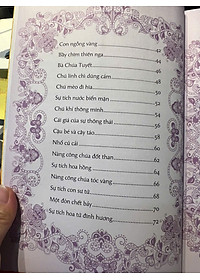 Con ngỗng vàng 42
Bầy chim thiên nga 44
Bà Chúa Tuyết
Chú lính chì dũng cảm
Chú mèo đi hia
Sự tích nước biển mặn
Chú khỉ thông minh
Cái giá của sự thông thái
Cậu bé và cây táo
Nhổ củ cải
Nàng công chúa đốt than
Sự tích hoa hồng
Nàng công chúa tóc vàng
Sự tích con sư tử 68
Một đòn chết bảy 70
Sự tích hoa tử đinh hương 72